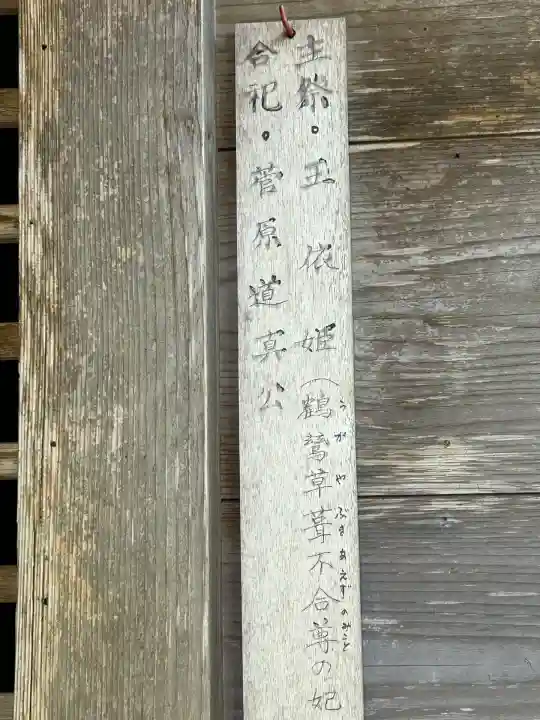 主祭・玉依姫(鶴鵞草葺不合尊の妃
うがやぶきあえずのみこと
合祀・菅原道真公